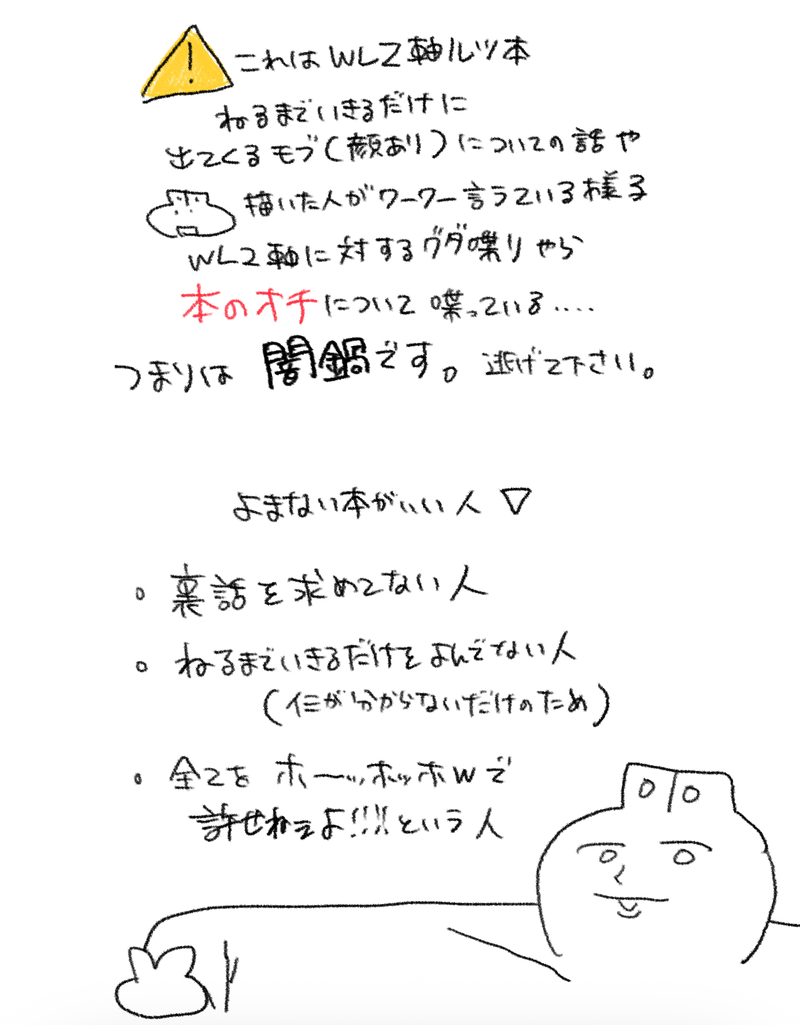 これは WL2軸ルツ本
ねるまでいきるだけに
出てくるモブ(顔あり)についての話や
描いた人がワーワー言うている様子
WL2軸に対するグダ喋りやら
本のオチについて喋っている‥‥
つまりは 闇鍋です。逃げて下さい。
よまない本がいい人▽
◦ 裏話を求めてない人
◦ ねるまでいきるだけをよんでない人
(イミが分からないだけのため)
◦ 全てを ホーッホッホwで
許せねえよ!!!という人